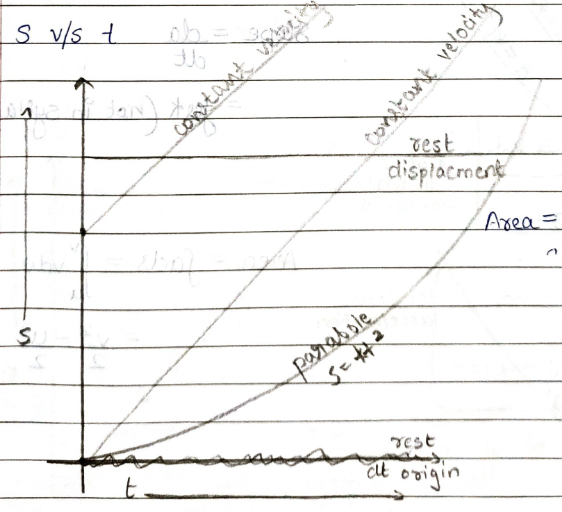 S v/s t
constant velocity
constant velocity
rest
displacment
Area =
S
parabole
S = kt²
rest
at origin
t